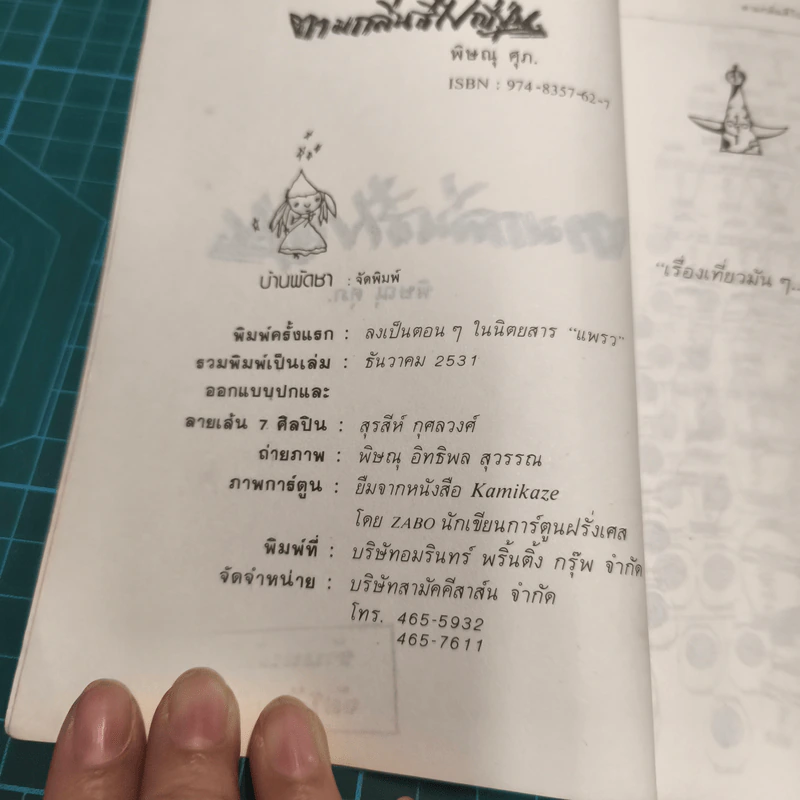 ตามกลิ่นสีไปญี่ปุ่น
พิษณุ ศุภ.
ISBN : 974-8357-62-7
บ้านพัดชา : จัดพิมพ์
พิมพ์ครั้งแรก : ลงเป็นตอน ๆ ในนิตยสาร “แพรว”
รวมพิมพ์เป็นเล่ม : ธันวาคม 2531
ออกแบบปกและ
ลายเส้น 7 ศิลปิน : สุรสีห์ กุศลวงศ์
ถ่ายภาพ : พิษณุ อิทธิพล สุวรรณ
ภาพการ์ตูน : ยืมจากหนังสือ Kamikaze
โดย ZABO นักเขียนการ์ตูนฝรั่งเศส
พิมพ์ที่ : บริษัทอมรินทร์ พริ้นติ้ง กรุ๊พ จำกัด
จัดจำหน่าย : บริษัทสามัคคีสาส์น จำกัด
โทร. 465-5932
465-7611
“เรื่องเที่ยวมัน ๆ...